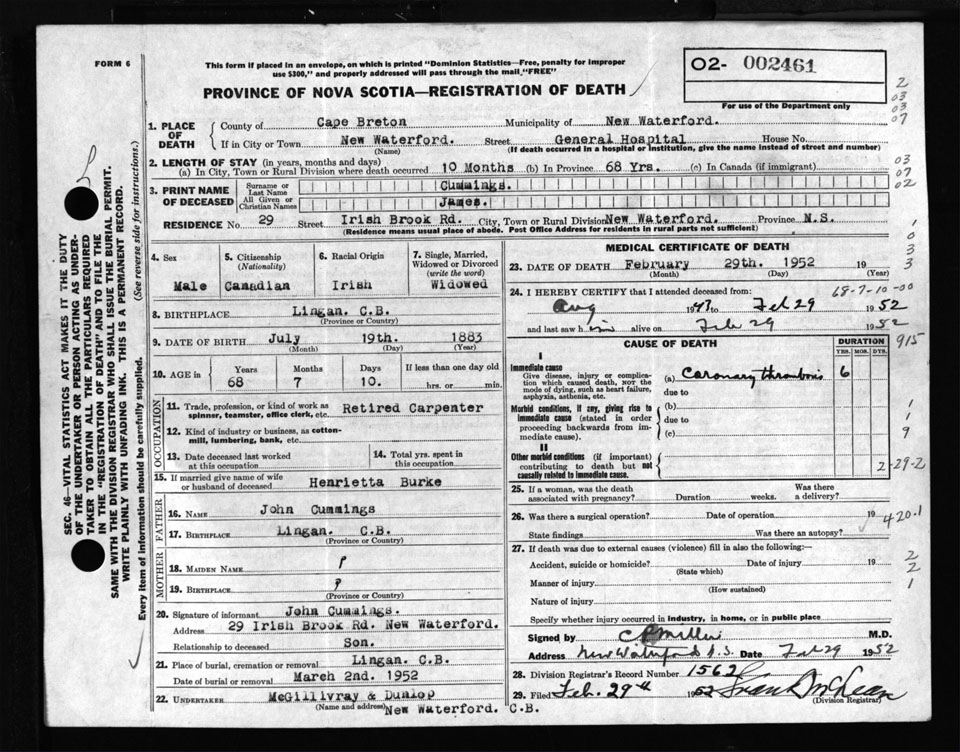 FORM 6
This form if placed in an envelope, on which is printed "Dominion Statistics—Free, penalty for improper
use $300," and properly addressed will pass through the mail "FREE"
O2- 002461
For use of the Department only
PROVINCE OF NOVA SCOTIA—REGISTRATION OF DEATH
2
03
03
07
1. PLACE OF DEATH
County of Cape Breton Municipality of New Waterford.
If in City or Town New Waterford. Street General Hospital House No.
(Name) (If death occurred in a hospital or institution, give the name instead of street and number)
2. LENGTH OF STAY (in years, months and days)
(a) In City, Town or Rural Division where death occurred 10 Months (b) In Province 68 Yrs. (c) In Canada (if immigrant)
03
07
02
3. PRINT NAME OF DECEASED
Surname or Last Name Cummings.
All Given or Christian Names James.
RESIDENCE No. 29 Street Irish Brook Rd. City, Town or Rural Division New Waterford. Province N.S.
(Residence means usual place of abode. Post Office Address for residents in rural parts not sufficient)
1
0
3
3
4. Sex
Male
5. Citizenship
(Nationality)
Canadian
6. Racial Origin
Irish
7. Single, Married,
Widowed or Divorced
(write the word)
Widowed
8. BIRTHPLACE Lingan. C.B.
(Province or Country)
9. DATE OF BIRTH July 19th. 1883
(Month) (Day) (Year)
10. AGE in
Years Months Days If less than one day old
68 7 10. hrs. or min.
OCCUPATION
11. Trade, profession, or kind of work as
spinner, teamster, office clerk, etc. Retired Carpenter
12. Kind of industry or business, as cotton-
mill, lumbering, bank, etc.
13. Date deceased last worked
at this occupation
14. Total yrs. spent in
this occupation
15. If married give name of wife
or husband of deceased Henrietta Burke
FATHER
16. NAME John Cummings
17. BIRTHPLACE Lingan. C.B.
(Province or Country)
MOTHER
18. MAIDEN NAME ?
19. BIRTHPLACE ?
(Province or Country)
20. Signature of informant John Cummings.
Address 29 Irish Brook Rd. New Waterford.
Relationship to deceased Son.
21. Place of burial, cremation or removal Lingan. C.B.
Date of burial or removal March 2nd. 1952
22. UNDERTAKER McGillivray & Dunlop
(Name and address) New Waterford. C.B.
MEDICAL CERTIFICATE OF DEATH
23. DATE OF DEATH February 29th. 1952 19
(Month) (Day) (Year)
68-7-10-00
24. I HEREBY CERTIFY that I attended deceased from:
Aug 1947 to Feb 29 1952
and last saw him alive on Feb 29 1952
915
CAUSE OF DEATH
DURATION
YRS. MOS. DYS.
I
Immediate cause
Give disease, injury or complica-
tion which caused death, NOT the
mode of dying, such as heart failure,
asphyxia, asthenia, etc.
(a) Coronary thrombosis 6
due to
Morbid conditions, if any, giving rise to
immediate cause (stated in order
proceeding backwards from im-
mediate cause).
(b)
due to
(c)
1
9
II
Other morbid conditions (if important)
contributing to death but not
causally related to immediate cause.
2-29-2
25. If a woman, was the death
associated with pregnancy? Duration weeks. Was there
a delivery?
26. Was there a surgical operation? Date of operation 19
State findings Was there an autopsy?
420.1
27. If death was due to external causes (violence) fill in also the following:—
Accident, suicide or homicide? Date of injury 19
(State which)
Manner of injury
(How sustained)
Nature of injury
2
2
1
Specify whether injury occurred in industry, in home, or in public place
Signed by C R Miller M.D.
Address New Waterford N.S. Date Feb 29 1952
28. Division Registrar's Record Number 1562
29. Filed Feb. 29th 1952 Frank McLean
(Division Registrar)
SEC. 46—VITAL STATISTICS ACT MAKES IT THE DUTY
OF THE UNDERTAKER OR PERSON ACTING AS UNDER-
TAKER TO OBTAIN ALL THE PARTICULARS REQUIRED
IN THE "REGISTRATION OF DEATH" AND TO FILE THE
SAME WITH THE DIVISION REGISTRAR WHO SHALL ISSUE THE BURIAL PERMIT.
WRITE PLAINLY WITH UNFADING INK. THIS IS A PERMANENT RECORD.
Every item of information should be carefully supplied. (See reverse side for instructions.)